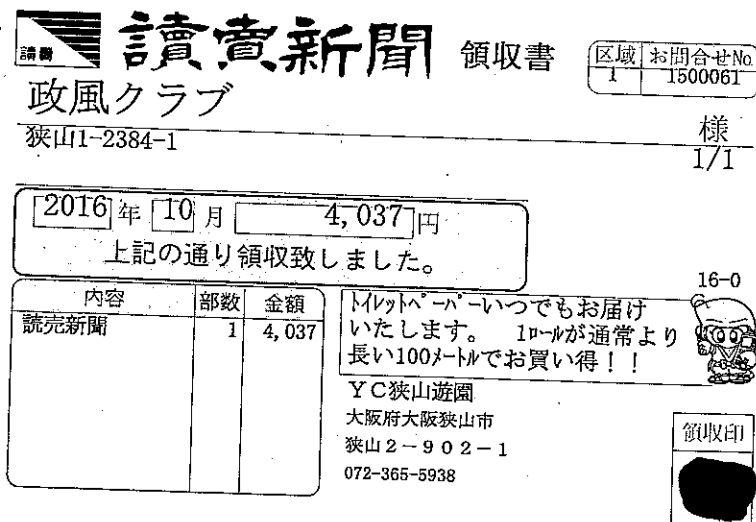 読売
讀賣新聞 領収書
区域 お問合せNo.
1 1500061
政風クラブ
狭山1-2384-1 様
1/1
2016年 10月 4,037円
上記の通り領収致しました。
16-0
内容 部数 金額
読売新聞 1 4,037
トイレットペーパーいつでもお届け
いたします。 1ロールが通常より
長い100メートルでお買い得！！
ＹＣ狭山遊園
大阪府大阪狭山市
狭山２－９０２－１
072-365-5938
領収印